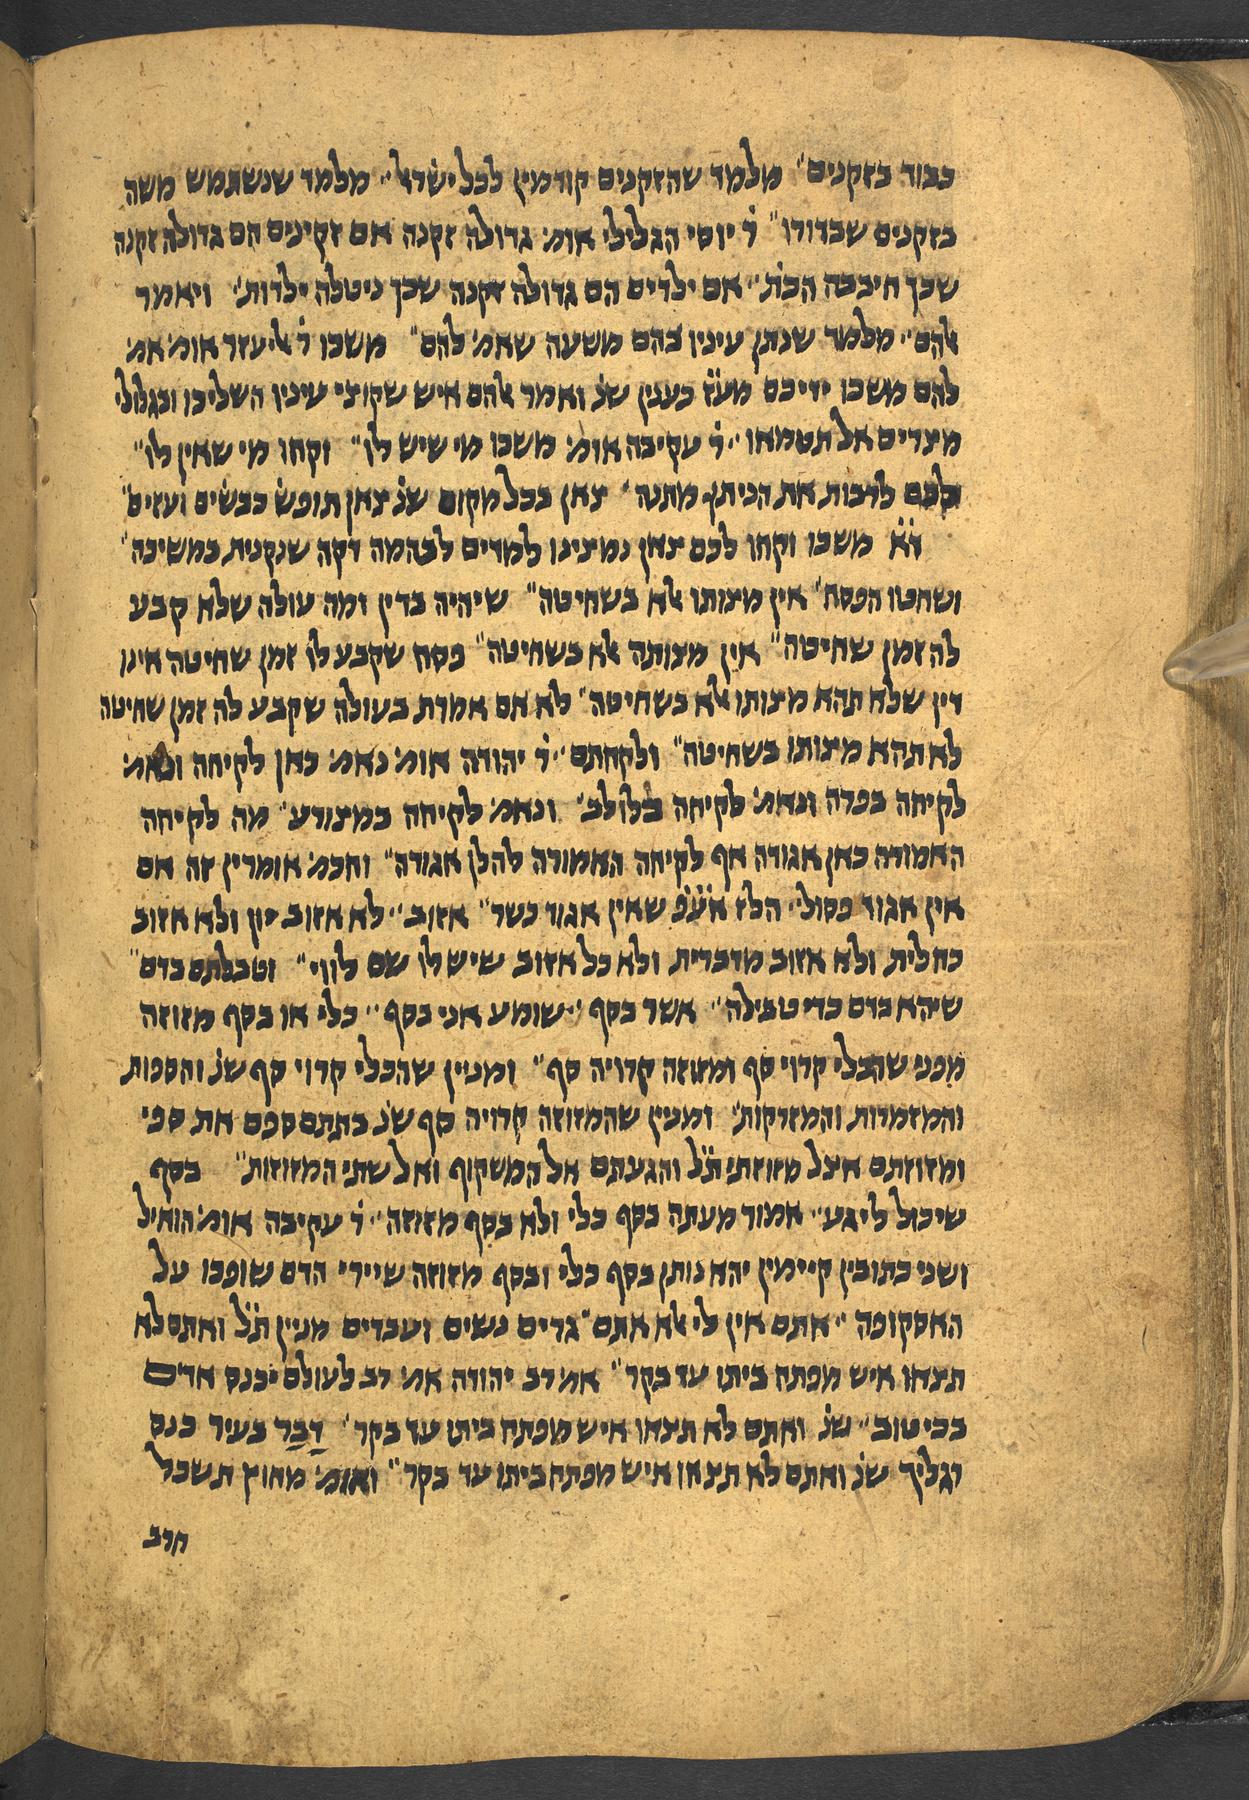 כבוד בזקנים״ מלמד שהזקנים קודמין לכל ישׂראל״ מלמד שנשתמש משה
בזקנים שבדורו״ ר׳ יוסי הגלילי אומ׳ גדולה זקנה אם זקינים הם גדולה זקנה
שכך חיבבה הכת׳״ אם ילדים הם גדולה זקנה שכך ניטלה ילדות׳ ויאמר
אלהם״ מלמד שנתן עינין בהם משעה שאמ׳ להם״ משכו ר׳ אליעזר אומ׳ אמ׳
להם משכו ידיכם מע״ז כענין שנ׳ ואמר אלהם איש שקוצי עיניו השליכו ובגלולי
מצרים אל תטמאו״ ר׳ עקיבה אומ׳ משכו מי שיש לו״ וקחו מי שאין לו״
לכם לרבות את הניתן מתנה׳ צאן בכל מקום שנ׳ צאן תופשׂ כבשׂים ועזים״
ד״א משכו וקחו לכם צאן נמצינו למדים לבהמה דקה שנקנית במשיכה״
ושחטו הפסח׳ אין מצותו אלא בשחיטה״ שיהיה בדין ומה עולה שלא קבע
לה זמן שחיטה״ אין מצותה אלא בשחיטה״ פסח שקבע לו זמן שחיטה אינו
דין שלא תהא מצותו אלא בשחיטה׳ לא אם אמרת בעולה שקבע לה זמן שחיטה
לא תהא מצותו בשחיטה״ ולקחתם״ ר׳ יהודה אומ׳ נאמ׳ כאן לקיחה ונאמ׳
לקיחה בפרה ונאמ׳ לקיחה בלולב׳ ונאמ׳ לקיחה במצורע׳ מה לקיחה
האמורה כאן אגודה אף לקיחה האמורה להלן אגודה״ וחכמ׳ אומרין זה אם
אין אגוד פסול״ הלז אע״פ שאין אגוד כשר״ אזוב״ לא אזוב יון ולא אזוב
כחלית ולא אזוב מדברית ולא כל אזוב שיש לו שם לווי״ וטבלתם בדם״
שיהא בדם כדי טבילה״ אשר בסף״ שומע אני בסף״ כלי או בסף מזוזה
מפני שהכלי קרוי סף ומזוזה קרויה סף״ ומניין שהכלי קרוי סף שנ׳ והספות
והמזמרות והמזרקות׳ ומנין שהמזוזה קרויה סף שנ׳ בתתם ספם את ספי
ומזוזתם אצל מזוזתי ת״ל והגעתם אל המשקוף ואל שתי המזוזות״ בסף
שיכול ליגע״ אמור מעתה בסף כלי ולא בסף מזוזה״ ר׳ עקיבה אומ׳ הואיל
ושני כתובין קיימין יהא נותן בסף כלי ובסף מזוזה שיירי הדם שופכו על
האסקופה״ אתם אין לי אלא אתם״ גרים נשים ועבדים מניין ת״ל ואתם לא
תצאו איש מפתח ביתו עד בקר״ אמ׳ רב יהודה אמ׳ רב לעולם יכנס אדם
בכי טוב״ שנ׳ ואתם לא תצאו איש מפתח ביתו עד בקר׳ דֶבֶר בעיר כנס
רגליך שנ׳ ואתם לא תצאו איש מפתח ביתו עד בקר״ ואומ׳ מחוץ תשכל
חרב